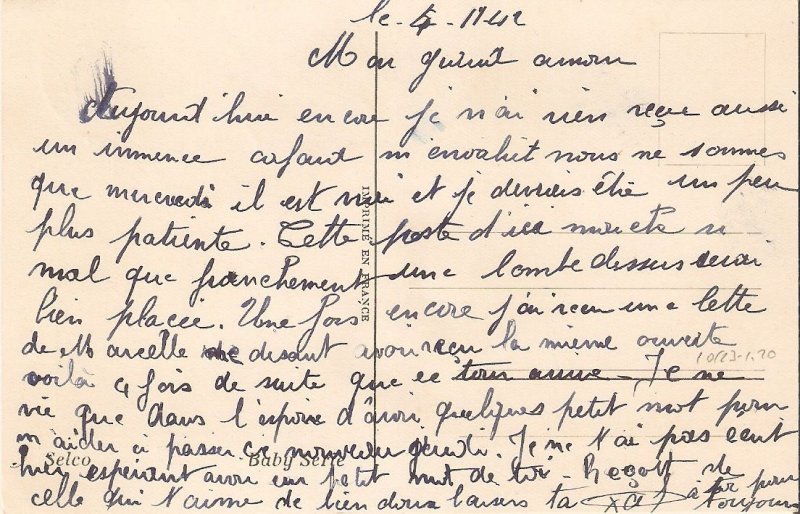 le 4-11-42
Mon amour
Aujourd'hui encore je n'ai rien reçue aussi
un immence cafaut m'envahit nous ne sommes
que mercredi il est vrai et je devrais être un peu
plus patiente. Cette poste d'ici marche si
mal que franchement une bombe dessus serai
bien placée. Une fois encore j'ai reçu une lette
de Marcelle me disant avoir reçu la mienne ouverte
voilà 4 fois de suite que ce tour arrive - Je ne
vie que dans l'espoire d'avoir quelques petit mot pour
m'aider à passer ce nouveau jeudi. Je ne t'ai pas ecrit
hier esperant avoir un petit mot de toi - Reçoit de
celle qui t'aime de bien doux baisers ta
à toi pour
toujours
IMPRIMÉ EN FRANCE
Selco
Baby Série